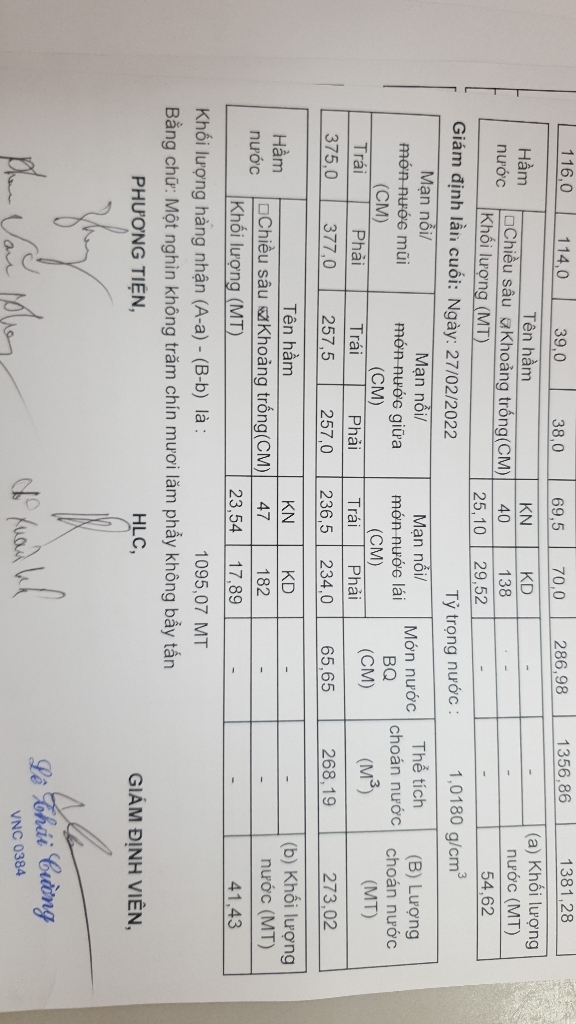 116,0 114,0 39,0 38,0 69,5 70,0 286,98 1356,86 1381,28
Hầm nước Tên hầm KN KD - - (a) Khối lượng nước (MT)
□Chiều sâu ☑Khoảng trống(CM) 40 138 - -
Khối lượng (MT) 25,10 29,52 - - 54,62
Giám định lần cuối: Ngày: 27/02/2022 Tỷ trọng nước : 1,0180 g/cm³
Mạn nổi/ Mạn nổi/ Mạn nổi/ Món nước Thể tích (B) Lượng
món nước mũi món nước giữa món nước lái BQ choán nước choán nước
(CM) (CM) (CM) (CM) (M³) (MT)
Trái Phải Trái Phải Trái Phải
375,0 377,0 257,5 257,0 236,5 234,0 65,65 268,19 273,02
Hầm nước Tên hầm KN KD - - (b) Khối lượng nước (MT)
□Chiều sâu ☑Khoảng trống(CM) 47 182 - -
Khối lượng (MT) 23,54 17,89 - - 41,43
Khối lượng hàng nhận (A-a) - (B-b) là : 1095,07 MT
Bằng chữ: Một nghìn không trăm chín mươi lăm phẩy không bẩy tấn
PHƯƠNG TIỆN, HLC, GIÁM ĐỊNH VIÊN,
Lê Thái Cường
VNC 0384